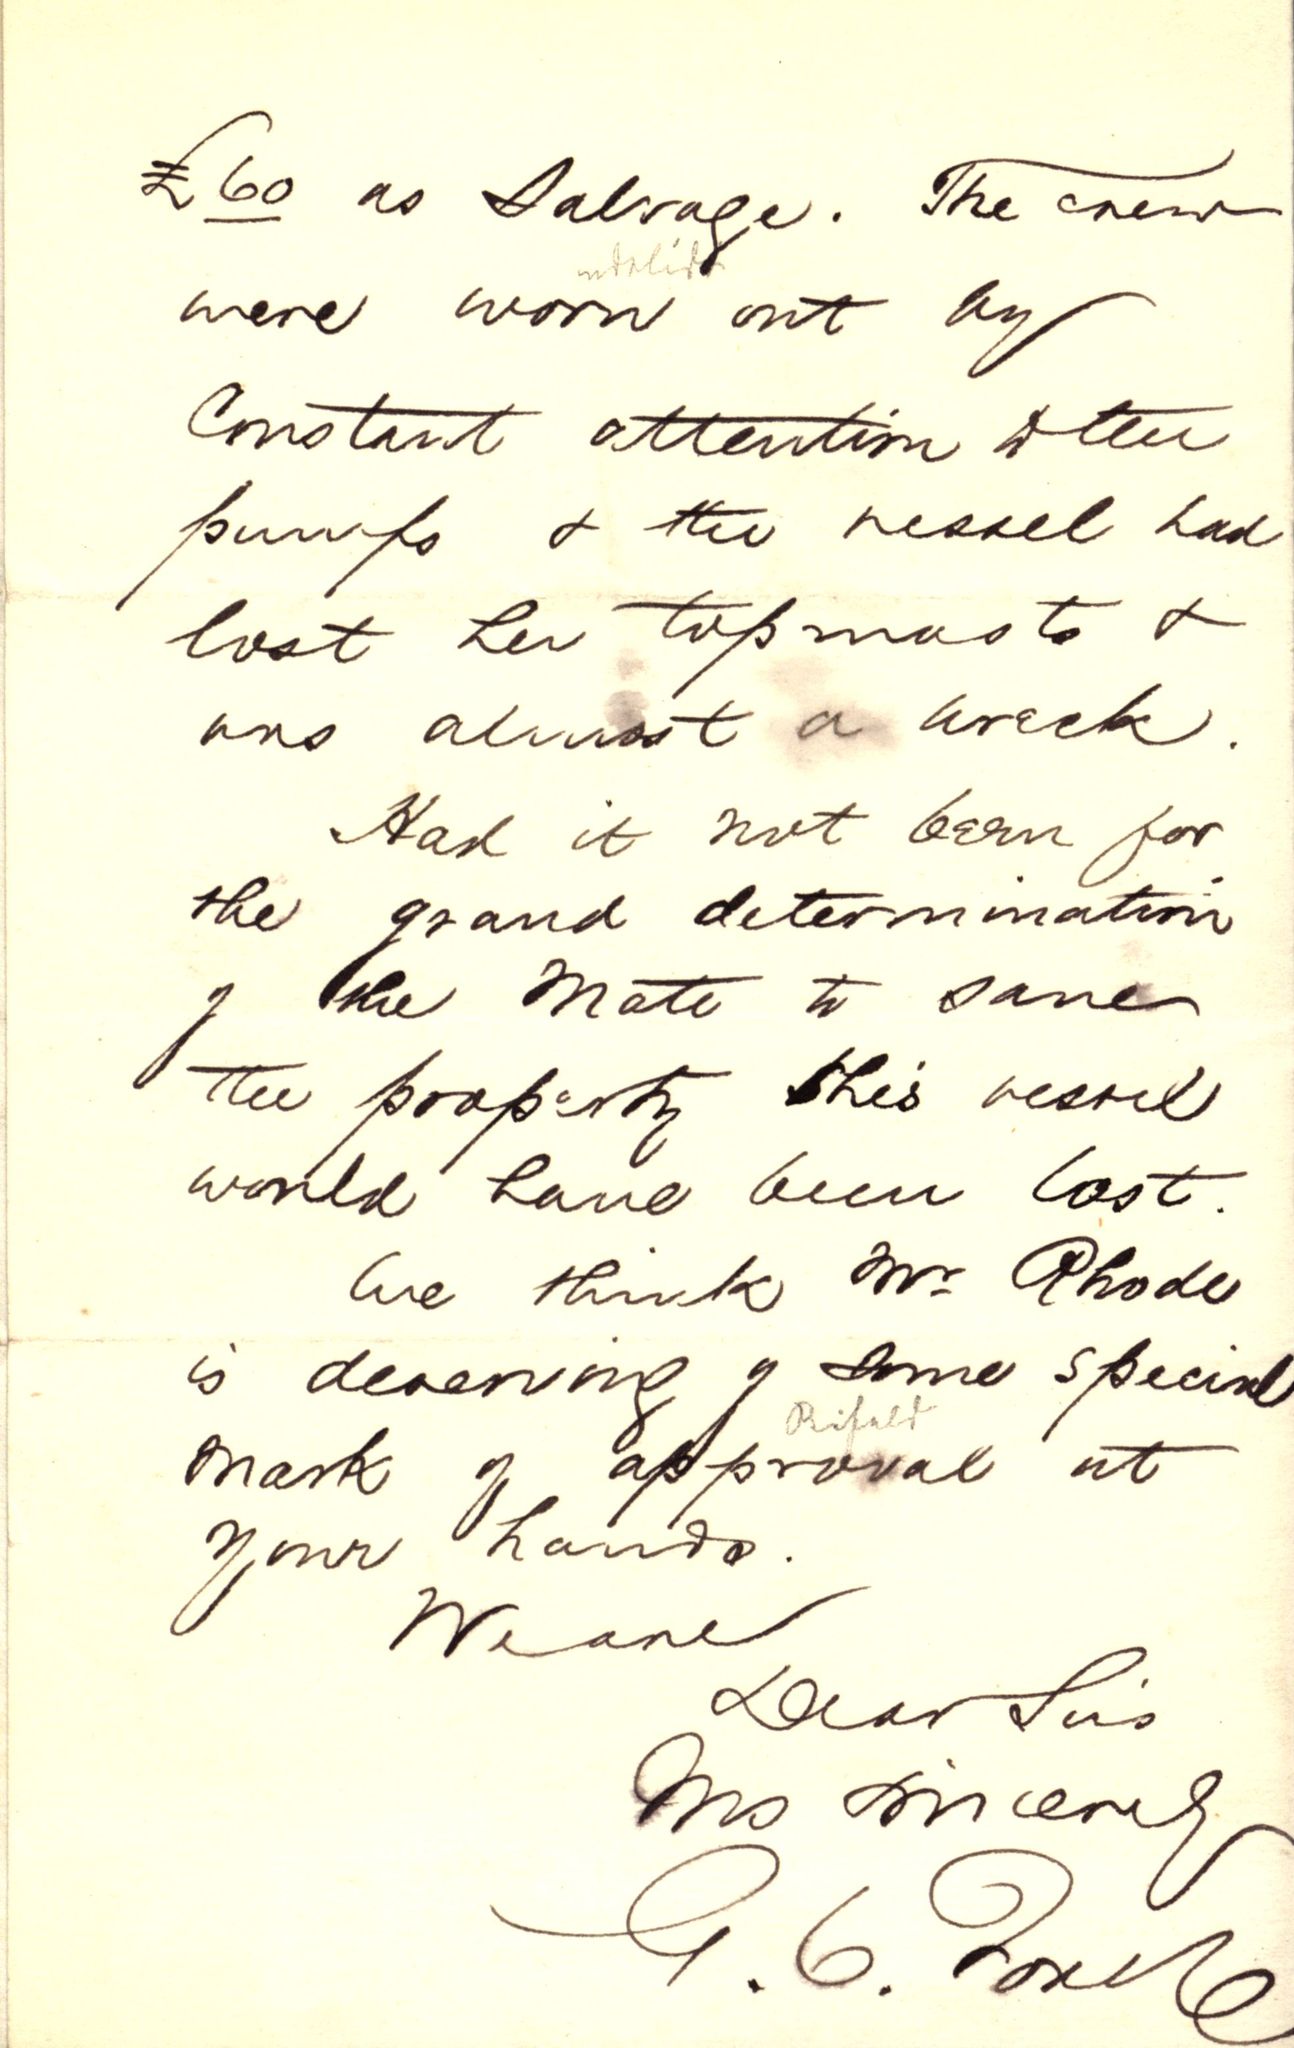 £60 as Salvage. The crew
were worn out by
Constant attention to the
pumps & the vessel had
lost her topmasts &
was almost a wreck.
Had it not been for
the grand determination
of the Mate to save
the property this vessel
would have been lost.
We think Mr. Rhode
is deserving of some special
mark of approval at
your hands.
We are
Dear Sirs
Yrs sincerely
G. C. Fox & Co